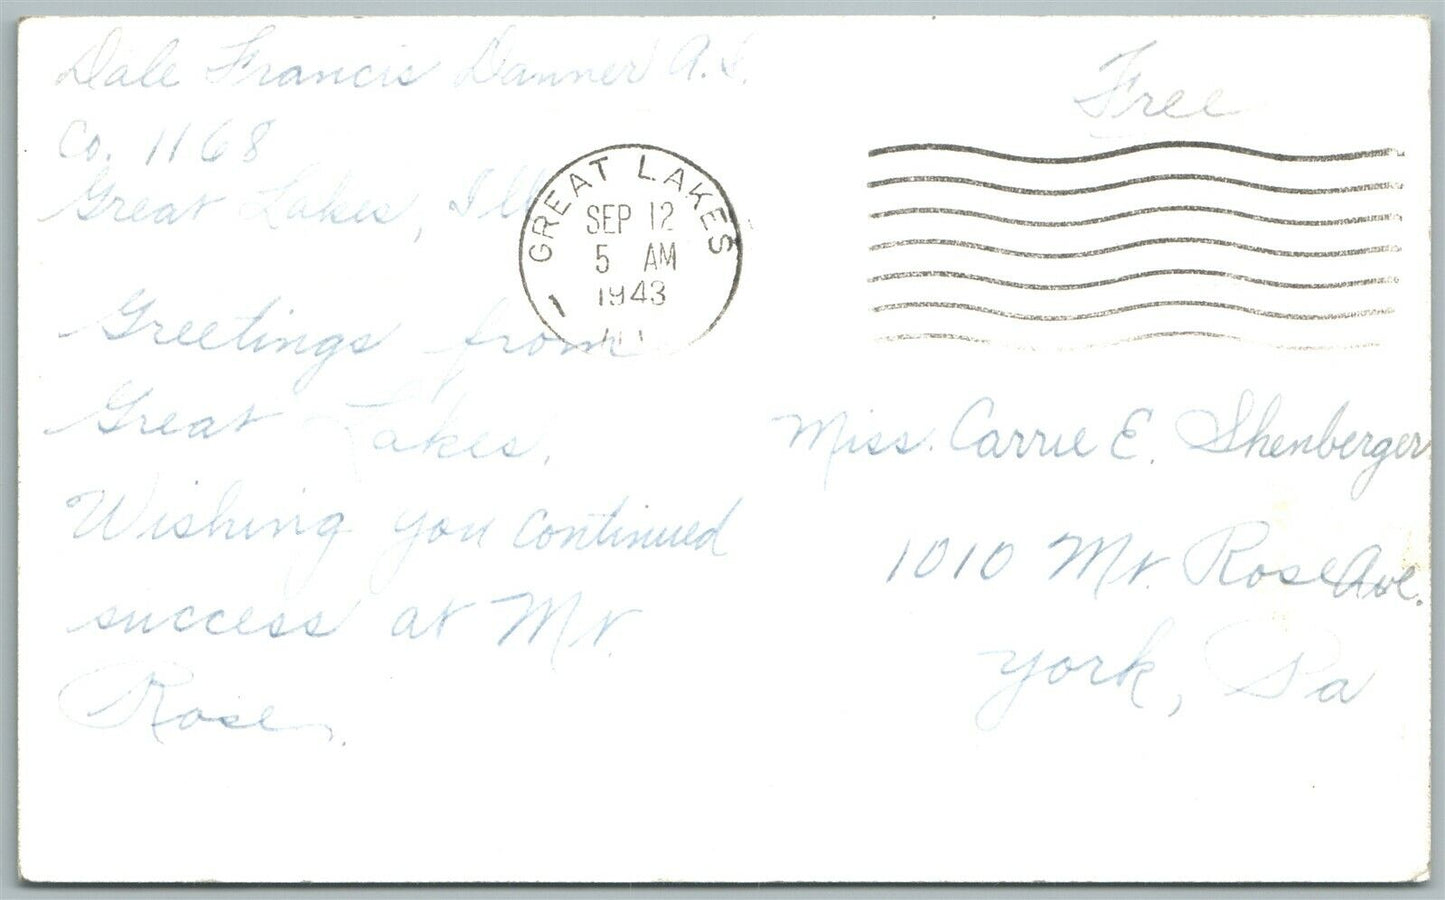 Dale Francis Danner A.S.
Co. 1168
Great Lakes, Ill
Free
GREAT LAKES
SEP 12
5 AM
1943
1
ILL
Greetings from
Great Lakes.
Wishing you continued
success at Mt.
Rose.
Miss. Carrie E. Shenberger
1010 Mt. Rose Ave.
York, Pa